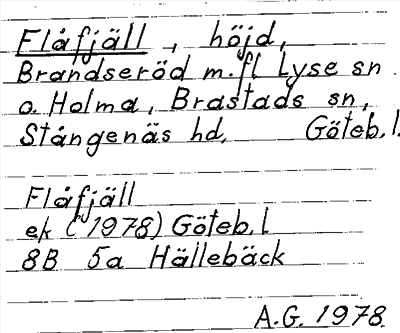 Flåfjäll, höjd,
Brandseröd m.fl Lyse sn
o. Holma, Brastads sn,
Stångenäs hd, Göteb. l.
Flåfjäll
ek (1978) Göteb. l
8B 5a Hällebäck
A.G. 1978.